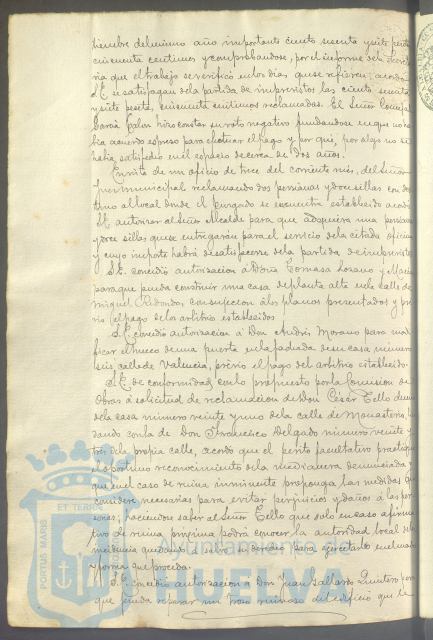 ciembre del mismo año importante ciento sesenta y siete pesetas
cincuenta centimos y comprobandose, por el informe del
ria que el trabajo se verificó en los dias que se refieren; acordó
S.E. se satisfagan de la partida de imprevistos las ciento sesenta
y siete pesetas, cincuenta centimos reclamadas. El Señor Concejal
Garcia hizo constar su voto negativo fundandose en que no ha
bia acuerdo espreso para efectuar el pago y por que, por algo no se
habia satisfecho en el espacio de cerca de dos años.
En vista de un oficio de trece del corriente mes, del Señor
Juez municipal reclamando dos persianas y doce sillas con des
tino al local donde el Juzgado se encuentra establecido acordó
S.E. autorizar al Señor Alcalde para que adquiera una persiana
y doce sillas que se entregarán para el servicio de la citada oficina
y cuyo importe habrá de satisfacerse de la partida de imprevistos
S.E. concedió autorizacion á Doña Tomasa Lozano y
para que pueda construir una casa de planta alta en la calle de
Miguel Redondo, con sujecion á los planos presentados y pre
vio el pago de los arbitrios establecidos.
S.E. concedió autorizacion á Don Andrés Morano para modi
ficar el hueco de una puerta en la fachada de su casa, número
seis calle de Valencia, prévio el pago del arbitrio establecido.
S.E. de conformidad con lo propuesto por la Comision de
Obras á solicitud de reclamacion de Don César Tello dueño
de la casa número veinte y uno de la calle de Monasterio, lin
dando con la de Don Francisco Delgado número veinte y
tres de la propia calle, acordó que el perito facultativo practique
el oportuno reconocimiento de la medianera denunciada, y
que en el caso de ruina inminente proponga las medidas que
considere necesarias para evitar perjuicios y daños á las per
sonas; haciendose saber al Señor Tello que solo en caso afirma
tivo de ruina proxima podrá conocer la autoridad local de la
incidencia quedando á salvo su derecho para ejercitarlo en el modo
y forma que proceda.
S.E. concedió autorizacion á Don Juan Gallardo Quintero para
que pueda reparar un trozo ruinoso del edificio que le
PORTUS MARIS
ET TERRE
Ayuntamiento de
HUELVA